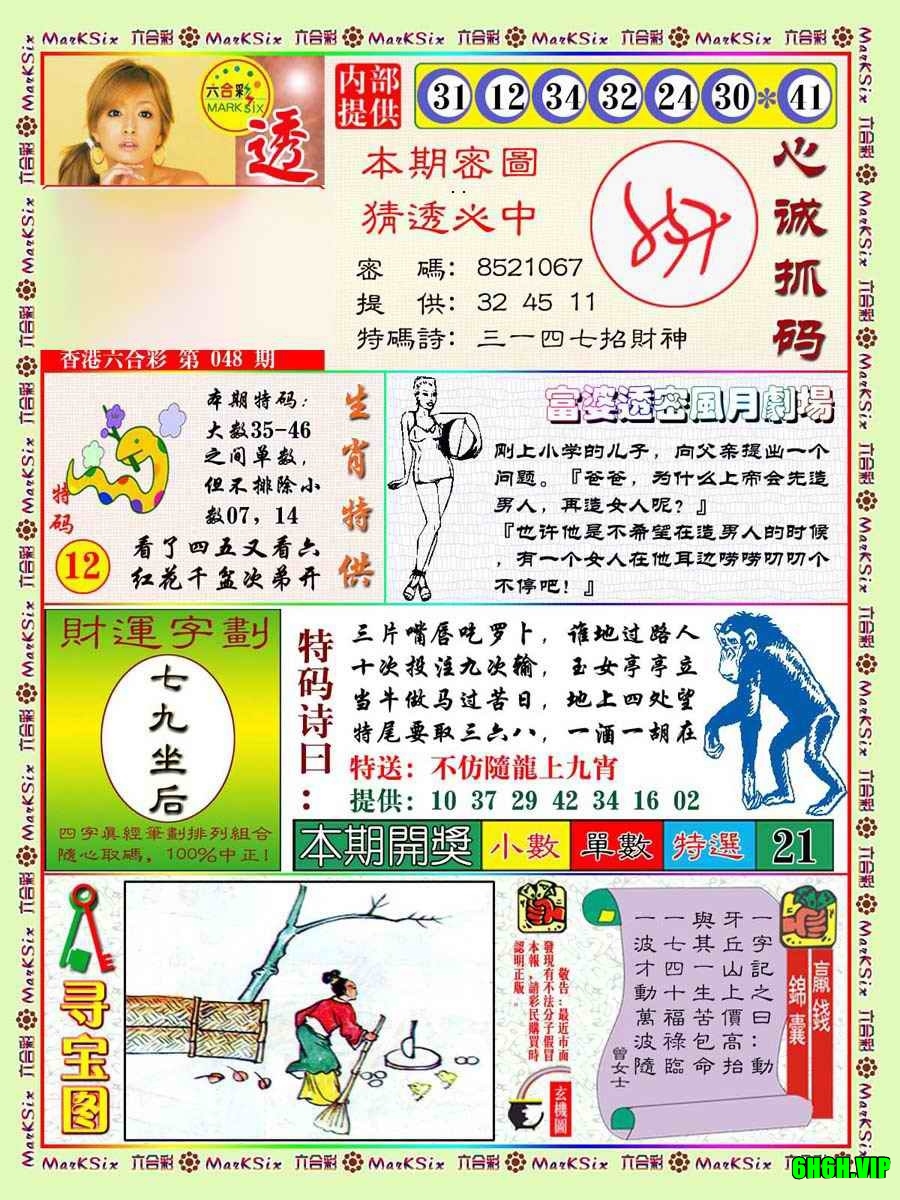 MarKSix 六合彩 MarKSix 六合彩 MarKSix 六合彩 MarKSix 六合彩 MarKSix 六合彩
六合彩
MARK SIX
透
内部
提供
31 12 34 32 24 30 * 41
本期密圖
猜透必中
密 碼：8521067
提 供：32 45 11
特碼詩：三一四七招財神
心诚抓码
香港六合彩 第 048 期
本期特码：
大数35-46
之间单数，
但不排除小
数07，14
特码
12
看了四五又看六
红花千盆次弟开
生肖特供
富婆透密風月劇場
刚上小学的儿子，向父亲提出一个
问题。『爸爸，为什么上帝会先造
男人，再造女人呢？』
『也许他是不希望在造男人的时候
，有一个女人在他耳边唠唠叨叨个
不停吧！』
財運字劃
七九坐后
四字眞經筆劃排列組合
隨心取碼，100%中正！
特码诗曰：
三片嘴唇吃罗卜，谁地过路人
十次投注九次输，玉女亭亭立
当牛做马过苦日，地上四处望
特尾要取三六八，一酒一胡在
特送：不仿隨龍上九宵
提供：10 37 29 42 34 16 02
本期開獎 小數 單數 特選 21
寻宝图
敬告：最近市面
發現有不法分子假冒
本報，請彩民購買時
認明正版。
玄機圖
贏錢
錦囊
一字記之曰：動
牙丘山上價高抬
與其一生苦包命
一七四十福祿臨
一波才動萬波隨
曾女士
MarKSix 六合彩 MarKSix 六合彩 MarKSix 六合彩 MarKSix 六合彩 MarKSix 六合彩
6H6H.VIP